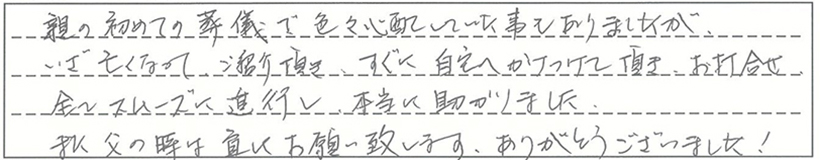 親の初めての葬儀で色々心配していた事もありましたが、
いざ亡くなって、ご紹介頂き、すぐに自宅へかけつけて頂き、お打合せ、
全てスムーズに進行し、本当に助かりました。
また父の時は直にお願い致します。ありがとうございました！